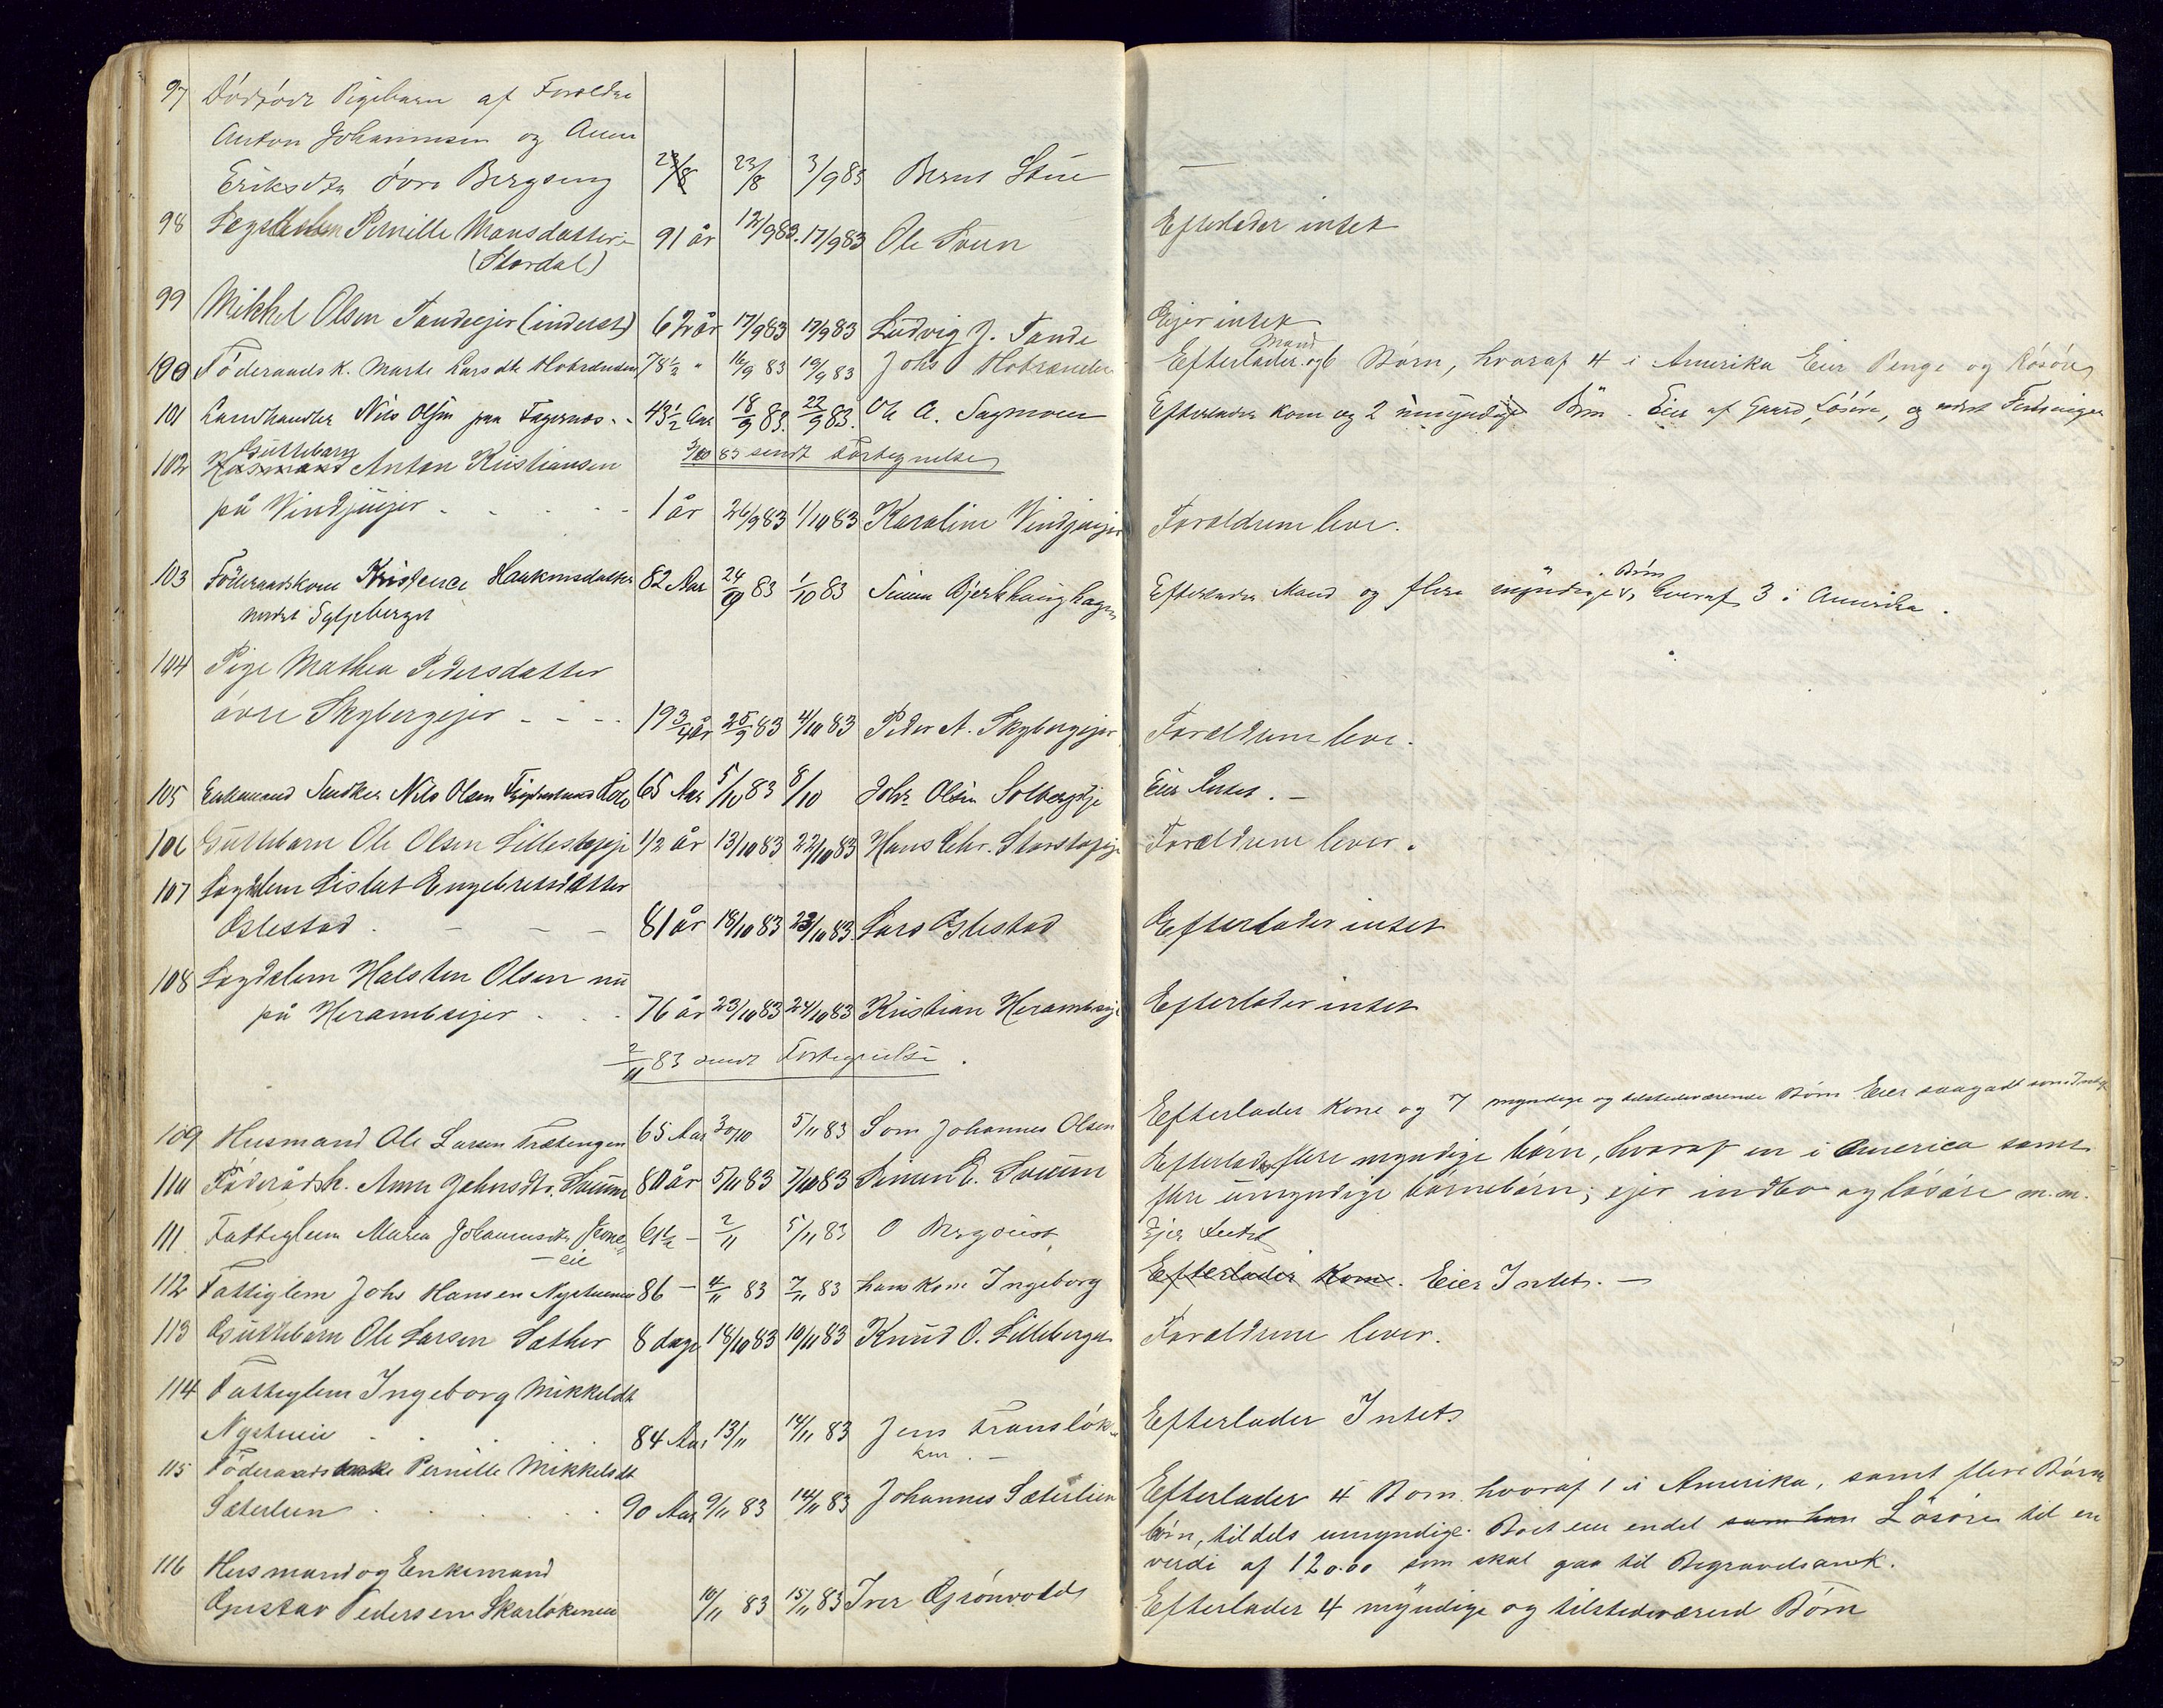 97 Dödfödt Pigebarn af Forældre
Anton Johannesen og Anne
Eriksdtr Övre Bergseng 23/8 23/8 3/9 83 Bernt Stue —
98 Lægdslem Pernille Mons datter 91 år 12/9 83. 17/9 83 Ole Sveen Efterlader intet
(Stordal)
99 Mikkel Olsen Tandeejer (inderst) 62 år 17/9 83 17/9 83 Ludvig J. Tande Ejer intet
100 Föderaads k. Marte Larsdtr 78 1/2 " 16/9 83 19/9 83 Johs Efterlader Mand og 6 Börn, hvoraf 4 i Amerika Eier Penge og Lösöre
101 Landhandler Nils Olsen paa Fagernæs - - 43 1/2 Aar 18/9 83. 22/9 83. Ole A. Sagmoen Efterlader Kone og 2 umyndige Börn. Eier af Gaard, Lösöre, og Fordringer
102 Guttebarn Anton Kristiansen 3/10 83 sendt Fortegnelse
på Vindjuejer - - - - 1 år 26/9 83 1/10 83 Karoline Vindjuejer Forældrene leve.
103 Föderaadskone Haakensdatter 82 Aar 24/9 83 1/10 83 Simen Bjerkhaughagen Efterlader Mand og flere myndige Börn, hvoraf 3 i Amerika.
nordre
104 Pige Mathea Pedersdatter
övre Skybergejer - - - 19 3/4 år 25/9 83 4/10 83 Peder A. Skybergejer Forældrene leve.
105 Enkemand Snedker Nils Olsen 65 Aar 5/10 83 8/10 Johs Olsen Solbergeje Eier Intet. —
106 Guttebarn Ole Olsen 1/2 år 13/10 83 22/10 83 Hans Chr. Forældrene lever.
107 Lægdslem Lisbet Engebretsdatter
Oslestad. - - - 81 år 18/10 83 23/10 83. Lars Oslestad Efterlader intet
108 Lægdslem Halsten Olsen nu
på Herambeijer . . . 76 år 23/10 83 24/10 83 Kristian Herambeije Efterlader intet
2/11 83 sendt Fortegnelse.
109 Husmand Ole Larsen Trætengen 65 Aar 30/10 5/11 83 Søn Johannes Olsen Efterlader Kone og 7 myndige og tilstedeværende Börn Eier saagodt som Intet
110 Föderådsk. Anne Johnsdtr. Sveum 80 år 5/11 83 7/11 83 Simen E. Sveum Efterlader flere myndige börn, hvoraf en i America samt
flere umyndige börnebörn; ejer indbo og lösöre m. m.
111 Fattiglem Maria Johannesdtr 61 1/2 - 2/11 5/11 83 O Bergqvist Ejer Intet
eie
112 Fattiglem Johs Hansen Nystueneie 86 — 4/11 83 7/11 83 hans Kone Ingeborg Efterlader Kone. Eier Intet. —
113 Guttebarn Ole Larsen Sæther 8 dage 18/10 83 10/11 83 Knud O. Lilleberget Forældrene lever.
114 Fattiglem Ingeborg Mikkelsdt
Nystueie . . . . 84 Aar 13/11 14/11 83 Jens Efterlader Intet
115 Föderaads enke Pernille Mikkelsdt
Sæterlien . . . . . 90 Aar 9/11 83 14/11 83 Johannes Sæterlien Efterlader 4 Born hvoraf 1 i Amerika, samt flere Börne
börn, tildels umyndige. Boet eier endel som han Lösöre til en
verdi af 120.00 som skal gaa til Begravelsank.
116 Husmand og Enkemand
Gustav Pedersen Skarlökeneie 10/11 83 15/11 83 Iver Grönvold Efterlader 4 myndige og tilstedeværend Börn